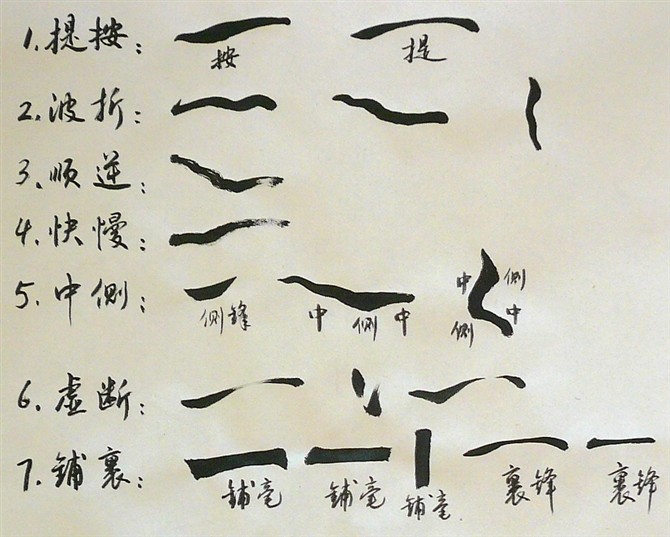 1.提按：
按 提
2.波折：
3.顺逆：
4.快慢：
5.中侧：
中 侧
侧锋 中 侧 中 侧 中
6.虚断：
7.铺裹：
铺毫 铺毫 铺毫 裹锋 裹锋